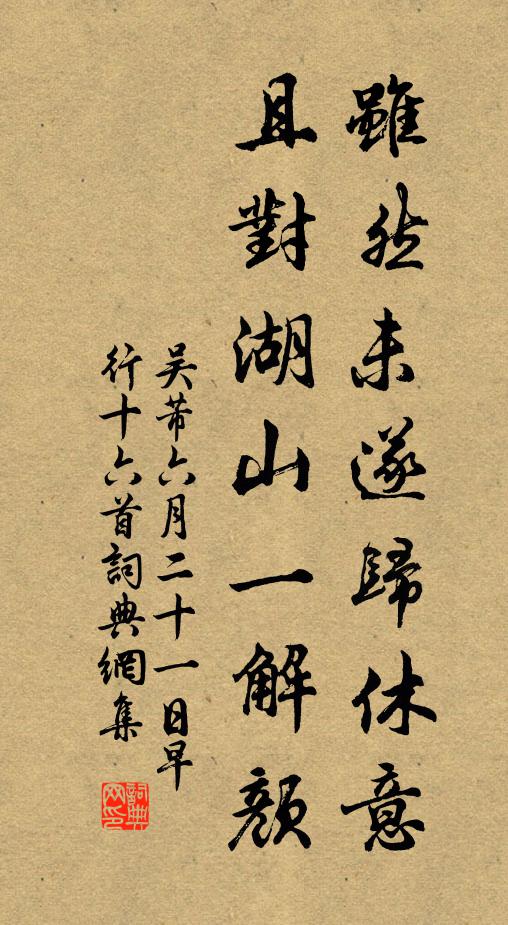 雖然未遂歸休意
且對湖山一解顏
吴芾六月二十一日早
行十六首詞典網集
詞典
网印